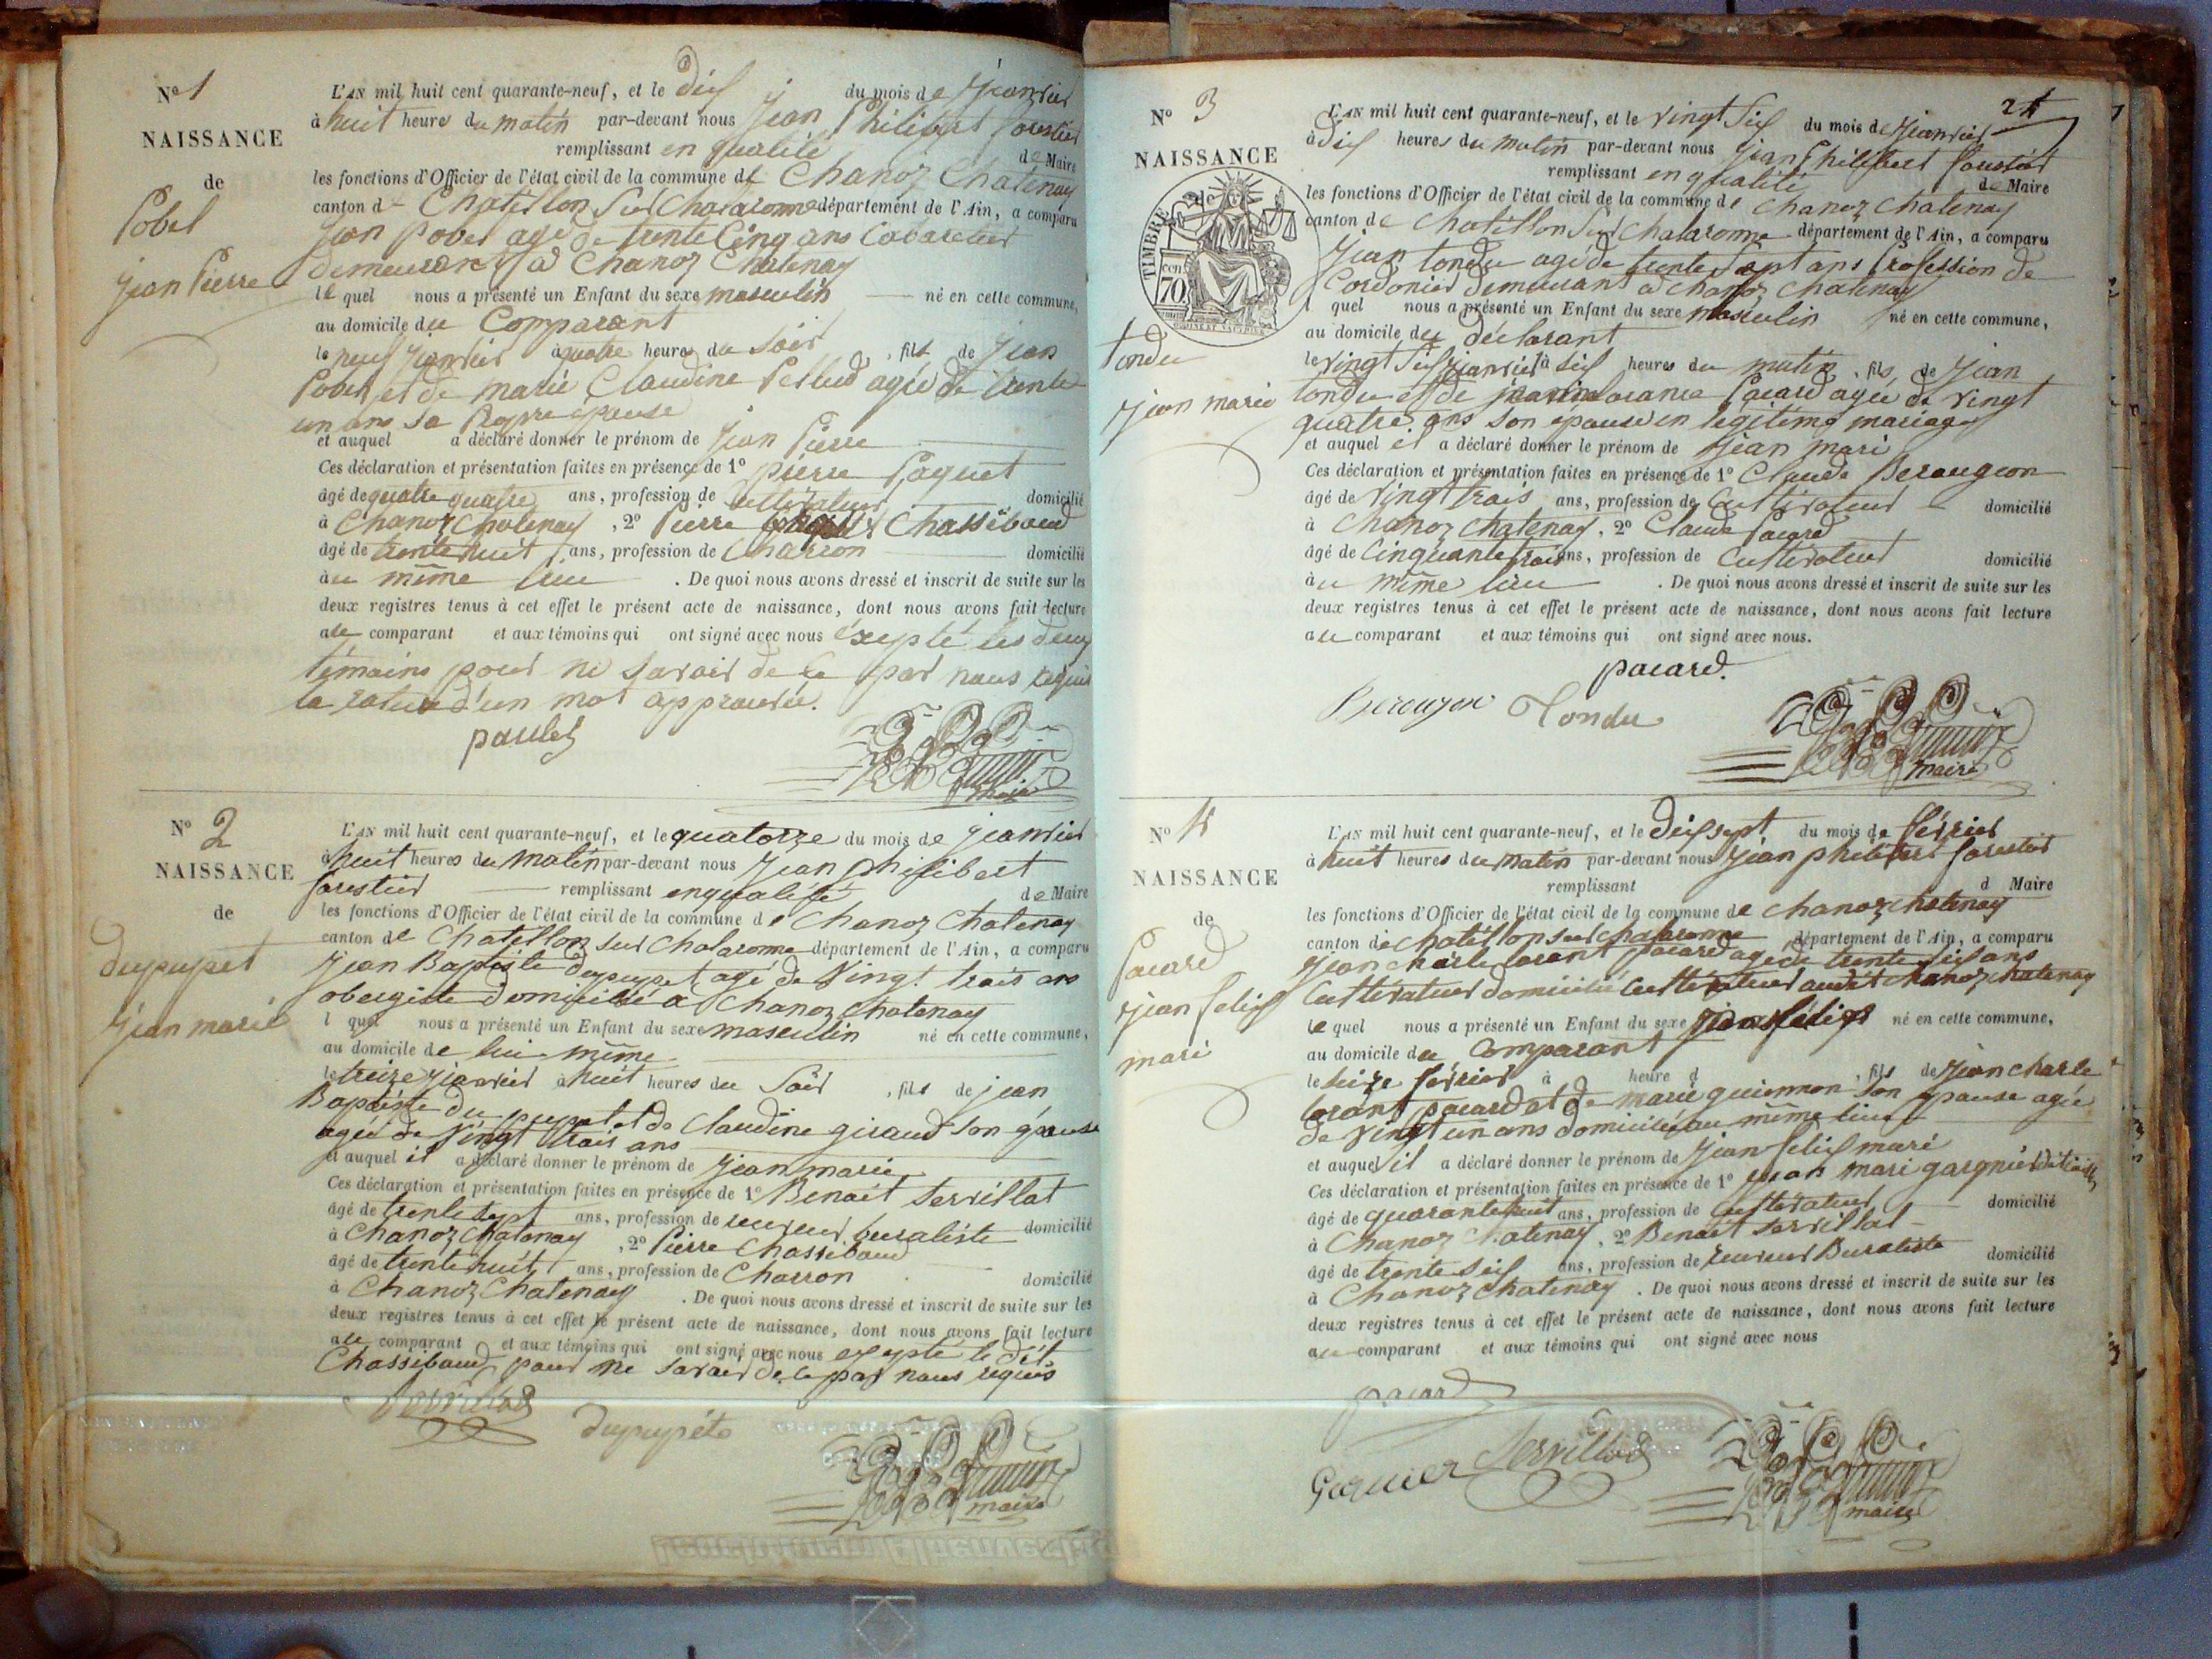 Nº 1
NAISSANCE
de
Pobel
jean Pierre
L'AN mil huit cent quarante-neuf, et le dix du mois de janvier
à huit heure du matin par-devant nous jean Philibert forestier
remplissant en qualité de Maire
les fonctions d'Officier de l'état civil de la commune de Chanoz Chatenay
canton de Chatillon sur Chalaronne département de l'Ain, a comparu
jean Pobel agé de trente Cinq ans Cabaretier
demeurant à Chanoz Chatenay
le quel nous a présenté un Enfant du sexe masculin né en cette commune,
au domicile du Comparant
le neuf janvier à quatre heures du soir, fils de jean
Pobel et de marie Claudine agée de trente
un ans sa Propre épouse
et auquel a déclaré donner le prénom de jean Pierre
Ces déclaration et présentation faites en présence de 1º pierre Paquet
âgé de quatre quatre ans, profession de Cultivateur domicilié
à Chanoz Chatenay, 2º Pierre Chassibaud
âgé de trente huit ans, profession de Charron domicilié
au même lieu. De quoi nous avons dressé et inscrit de suite sur les
deux registres tenus à cet effet le présent acte de naissance, dont nous avons fait lecture
au comparant et aux témoins qui ont signé avec nous exepté les deux
témoins pour ne savoir de ce par nous requis
la rature d'un mot approuvée.
maire
Nº 2
NAISSANCE
de
dupupet
jean marie
L'AN mil huit cent quarante-neuf, et le quatorze du mois de janvier
à huit heures du matin par-devant nous jean philibert
forestier remplissant en qualité de Maire
les fonctions d'Officier de l'état civil de la commune de Chanoz Chatenay
canton de Chatillon sur Chalaronne département de l'Ain, a comparu
jean Baptiste dupupet agé de Vingt trois ans
obergiste domicilié à Chanoz Chatenay
l quel nous a présenté un Enfant du sexe masculin né en cette commune,
au domicile de lui même
le treize janvier à huit heures du Soir, fils de jean
Baptiste du pupet et de Claudine giraud son épouse
agée de Vingt trois ans
et auquel il a déclaré donner le prénom de jean marie
Ces déclaration et présentation faites en présence de 1º Benoit Servillat
âgé de trente sept ans, profession de receveur buraliste domicilié
à Chanoz Chatenay, 2º Pierre Chassibaud
âgé de trente huit ans, profession de Charron domicilié
à Chanoz Chatenay. De quoi nous avons dressé et inscrit de suite sur les
deux registres tenus à cet effet le présent acte de naissance, dont nous avons fait lecture
au comparant et aux témoins qui ont signé avec nous exepté le dit
Chassibaud pour ne savoir de ce par nous requis
Servillat dupupéte
maire
24
Nº 3
NAISSANCE
de
TIMBRE
70
tondu
jean marie
L'AN mil huit cent quarante-neuf, et le vingt six du mois de janvier
à dix heures du matin par-devant nous jean philibert forestier
remplissant en qualité de Maire
les fonctions d'Officier de l'état civil de la commune de Chanoz Chatenay
canton de Chatillon sur Chalaronne département de l'Ain, a comparu
jean tondu agé de trente sept ans profession de
Cordonier demeurant à Chanoz Chatenay
l quel nous a présenté un Enfant du sexe masculin né en cette commune,
au domicile du déclarant
le vingt six janvier à six heures du matin, fils de jean
tondu et de Pacard agée de vingt
quatre ans son épouse en légitime mariage
et auquel il a déclaré donner le prénom de jean mari
Ces déclaration et présentation faites en présence de 1º Claude Beraugeon
âgé de vingt trois ans, profession de Cultivateur domicilié
à Chanoz Chatenay, 2º Claude Pacard
âgé de Cinquante trois ans, profession de Cultivateur domicilié
au même lieu. De quoi nous avons dressé et inscrit de suite sur les
deux registres tenus à cet effet le présent acte de naissance, dont nous avons fait lecture
au comparant et aux témoins qui ont signé avec nous.
pacard
Tondu
maire
Nº 4
NAISSANCE
de
Pacard
jean felix
mari
L'AN mil huit cent quarante-neuf, et le dix sept du mois de février
à huit heures du matin par-devant nous jean philibert forestier
remplissant d Maire
les fonctions d'Officier de l'état civil de la commune de Chanoz Chatenay
canton de Chatillon sur Chalaronne département de l'Ain, a comparu
jean charle lorant pacard agé de trente six ans
Cultivateur domicilié Cultivateur audit Chanoz Chatenay
le quel nous a présenté un Enfant du sexe né en cette commune,
au domicile du Comparant
le seize février à heure d, fils de jean charle
lorant pacard et de marie guionnon son épouse agée
de vingt un ans domiciliés au même lieu
et auquel il a déclaré donner le prénom de jean felix mari
Ces déclaration et présentation faites en présence de 1º jean mari gargnier
âgé de quarante huit ans, profession de Cultivateur domicilié
à Chanoz Chatenay, 2º Benoit Servillat
âgé de trente six ans, profession de receveur Buraliste domicilié
à Chanoz Chatenay. De quoi nous avons dressé et inscrit de suite sur les
deux registres tenus à cet effet le présent acte de naissance, dont nous avons fait lecture
au comparant et aux témoins qui ont signé avec nous
pacard
Garnier Servillat
maire